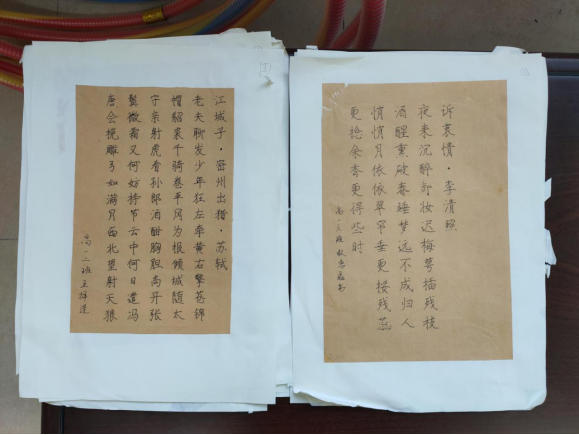 江城子·密州出猎·苏轼
老夫聊发少年狂左牵黄右擎苍锦
帽貂裘千骑卷平冈为报倾城随太
守亲射虎看孙郎酒酣胸胆尚开张
鬓微霜又何妨持节云中何日遣冯
唐会挽雕弓如满月西北望射天狼
高一三班王
诉衷情·李清照
夜来沉醉卸妆迟梅萼插残枝
酒醒熏破春睡梦远不成归人
悄悄月依依翠帘垂更挼残蕊
更捻余香更得些时
高一三班